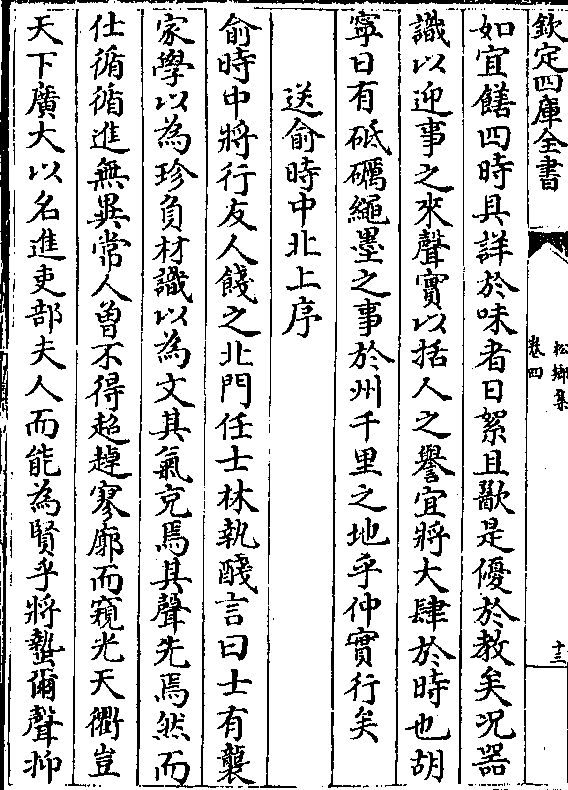 欽定四庫全書
松鄉集
卷四
十三
如宜饍四時具詳於味者日絮且歠是優於教矣况器
識以迎事之來聲實以括人之譽宜將大肆於時也胡
寧日有砥礪繩墨之事於州千里之地乎仲實行矣
送俞時中北上序
俞時中將行友人餞之北門任士林執醆言曰士有襲
家學以為珍負材識以為文其氣充焉其聲先焉然而
仕循循進無異常人曾不得超趠寥廓而窺光天衢豈
天下廣大以名進吏部夫人而能為賢乎將蟄爾聲抑